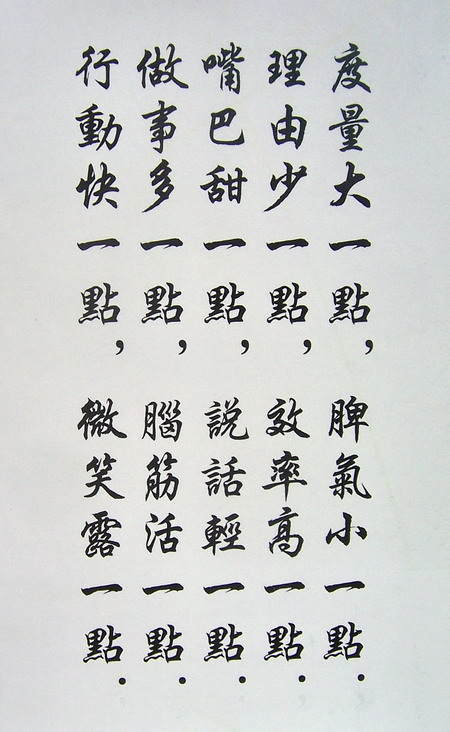 度量大一點，脾氣小一點．
理由少一點，效率高一點．
嘴巴甜一點，說話輕一點．
做事多一點，腦筋活一點．
行動快一點，微笑露一點．